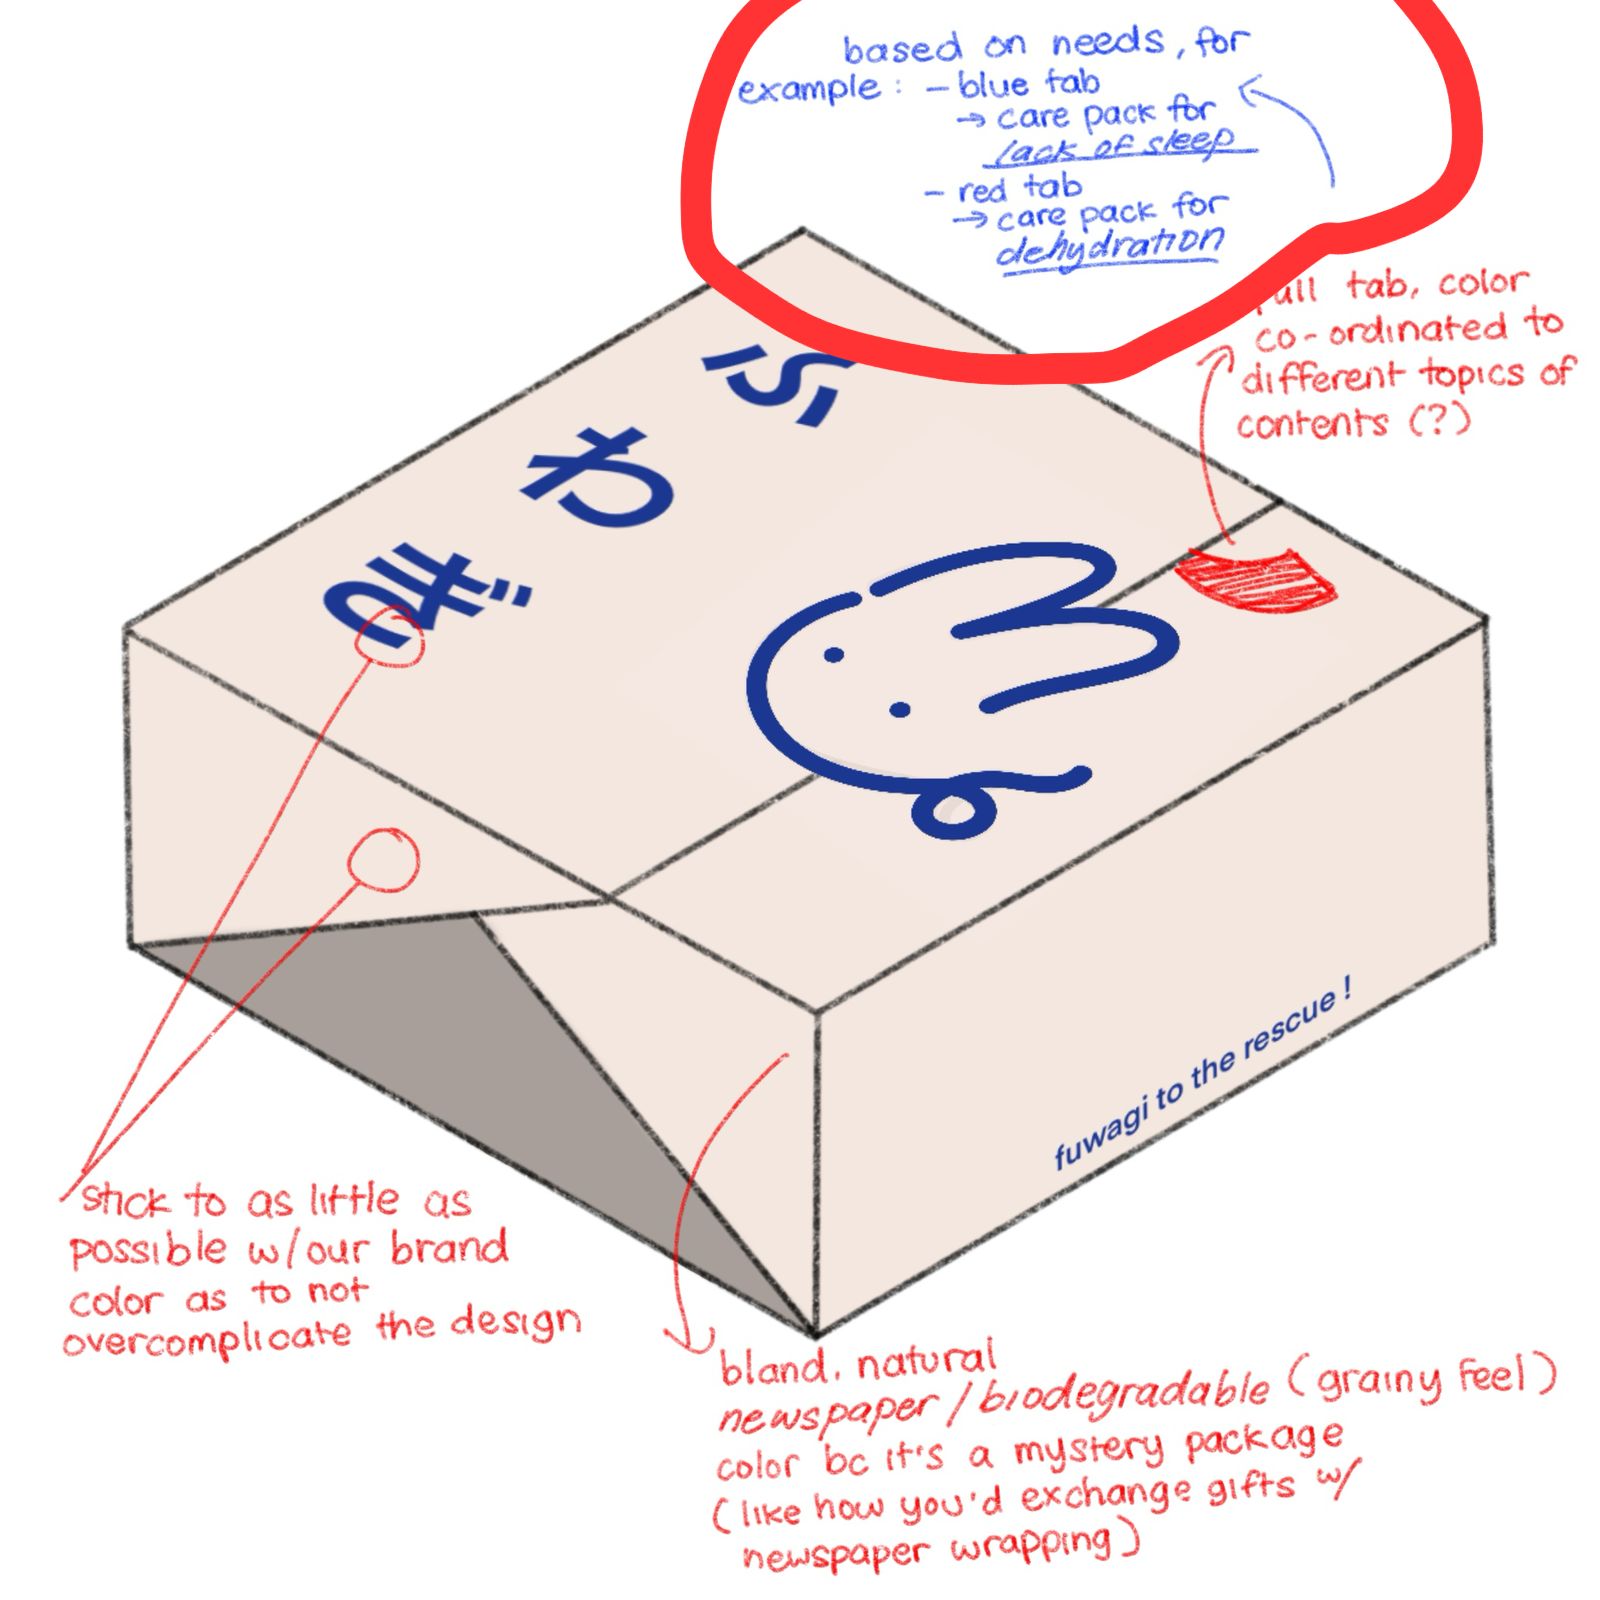 based on needs, for
example : - blue tab
→ care pack for
lack of sleep
- red tab
→ care pack for
dehydration
pull tab, color
co-ordinated to
different topics of
contents (?)
ふわぎ
fuwagi to the rescue !
stick to as little as
possible w/our brand
color as to not
overcomplicate the design
bland, natural
newspaper / biodegradable (grainy feel)
color bc it's a mystery package
(like how you'd exchange gifts w/
newspaper wrapping)